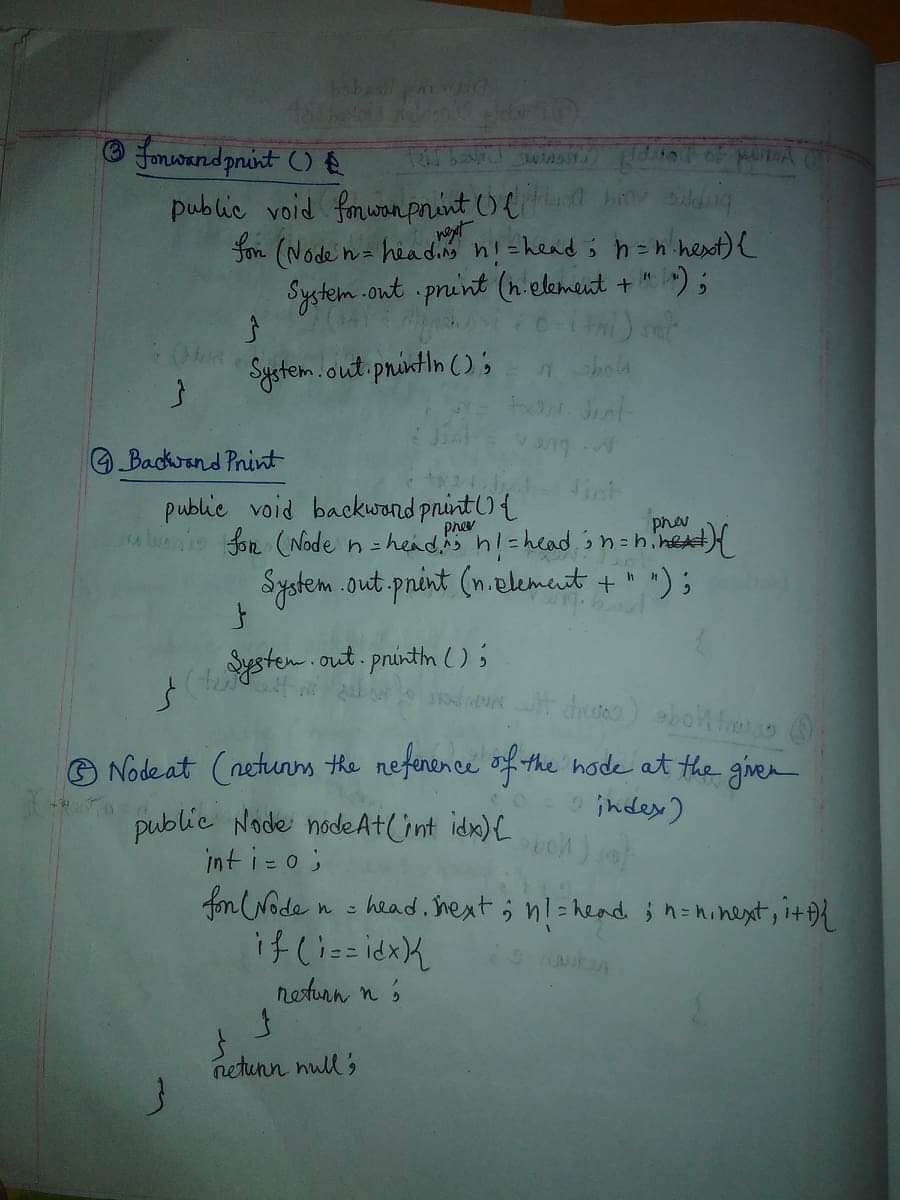 ③ forwardprint ()
public void forwanprint () {
for (Node n = head.next; n! = head ; n = n.next) {
System.out.print (n.element + " ") ;
}
System.out.println () ;
}
④ Backward Print
public void backward print () {
for (Node n = head.prev; n! = head ; n = n.prev) {
System.out.print (n.element + " ") ;
}
System.out.println () ;
}
⑤ Node at (returns the reference of the node at the given
index)
public Node nodeAt(int idx) {
int i = 0 ;
for (Node n = head.next ; n! = head ; n = n.next, i++) {
if (i == idx) {
return n ;
}
}
return null ;
}